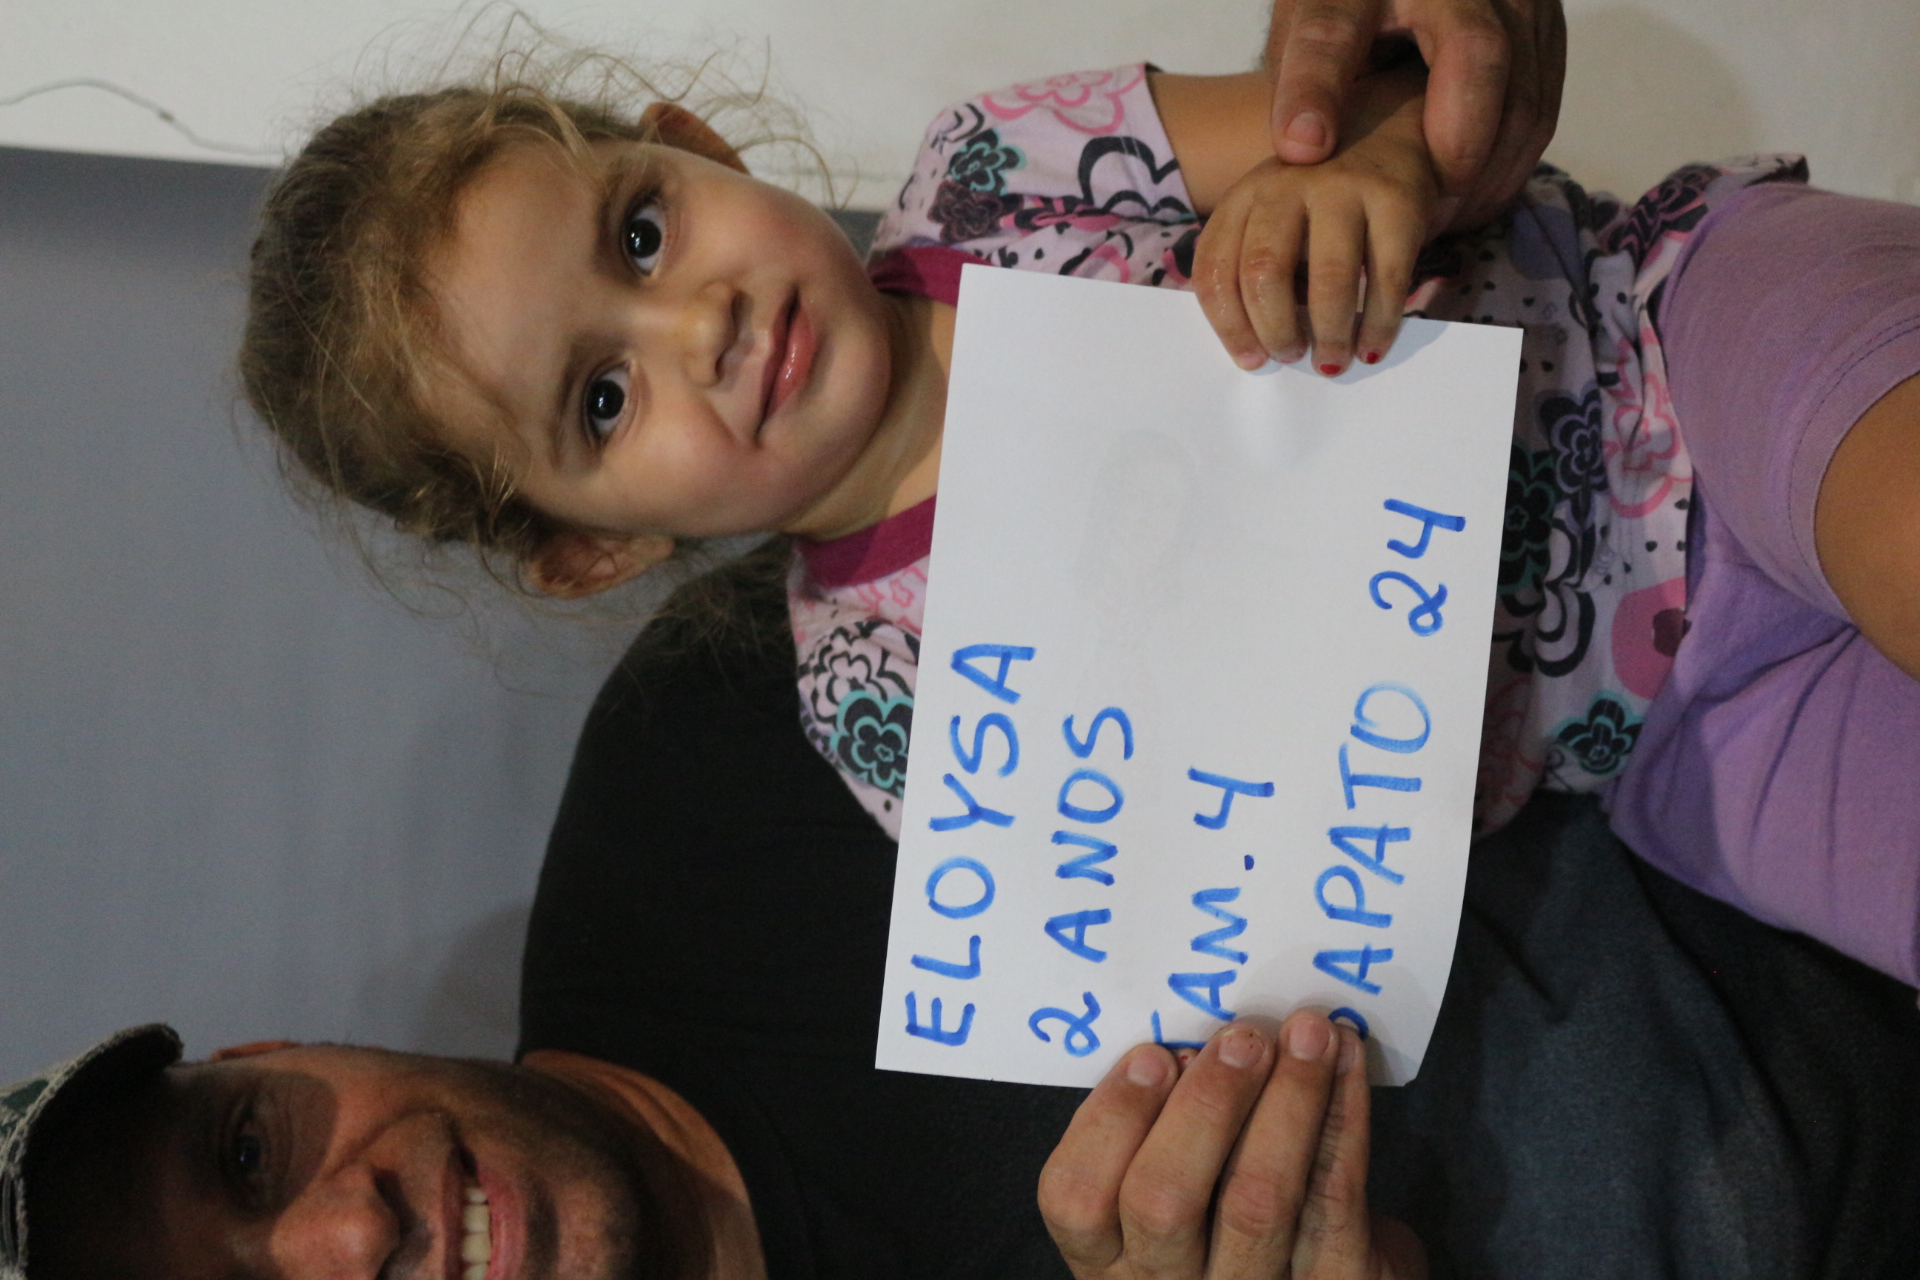 ELOYSA
2 ANOS
TAM. 4
SAPATO 24